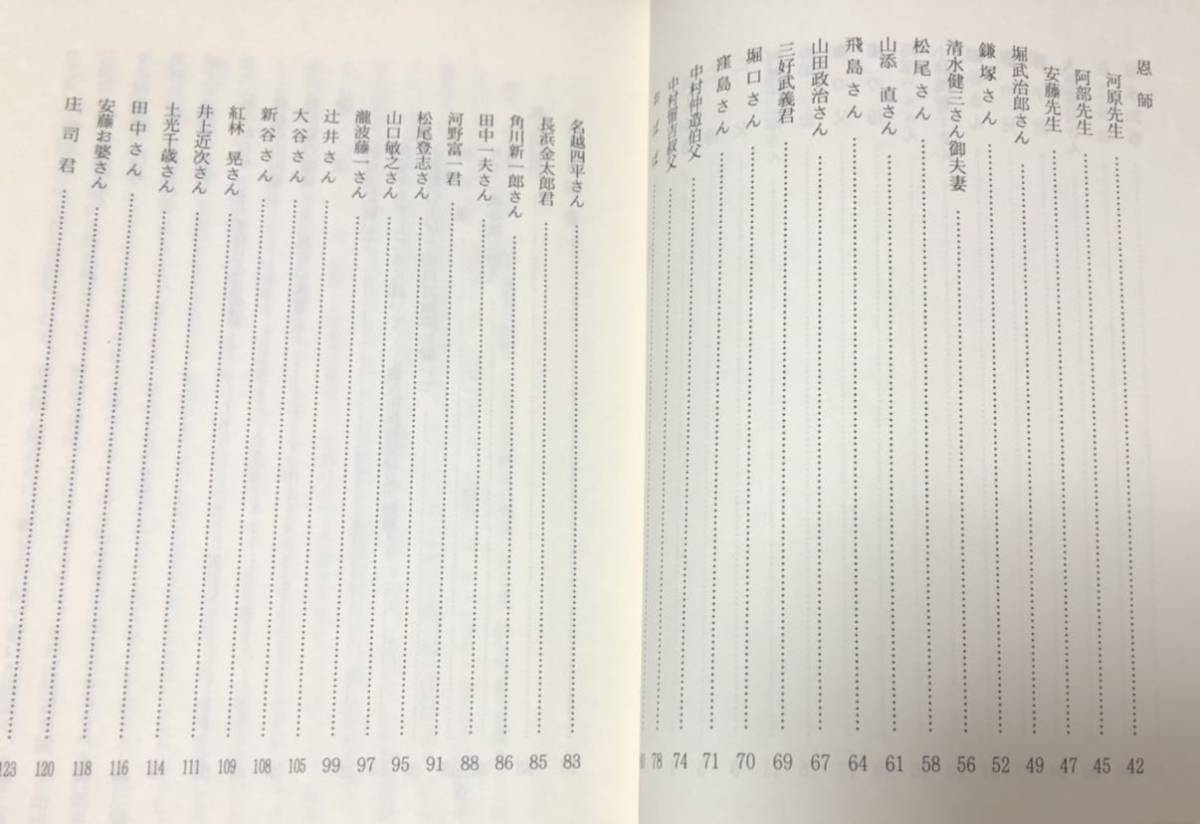 恩師
河原先生 42
阿部先生 45
安藤先生 47
堀武治郎さん 49
鎌塚さん 52
清水健三さん御夫妻 56
松尾さん 58
山添 直さん 61
飛島さん 64
山田政治さん 67
三好武義君 69
堀口さん 70
窪島さん 71
中村仲造伯父 74
中村 吉叔父 78
名越四平さん 83
長浜金太郎君 85
角川新一郎さん 86
田中一夫さん 88
河野富一君 91
松尾登志さん 95
山口敏之さん 97
瀧波藤一さん 99
辻井さん 105
大谷さん 108
新谷さん 109
紅林 晃さん 111
井上近次さん 114
土光千歳さん 116
田中さん 118
安藤お婆さん 120
庄司君 123